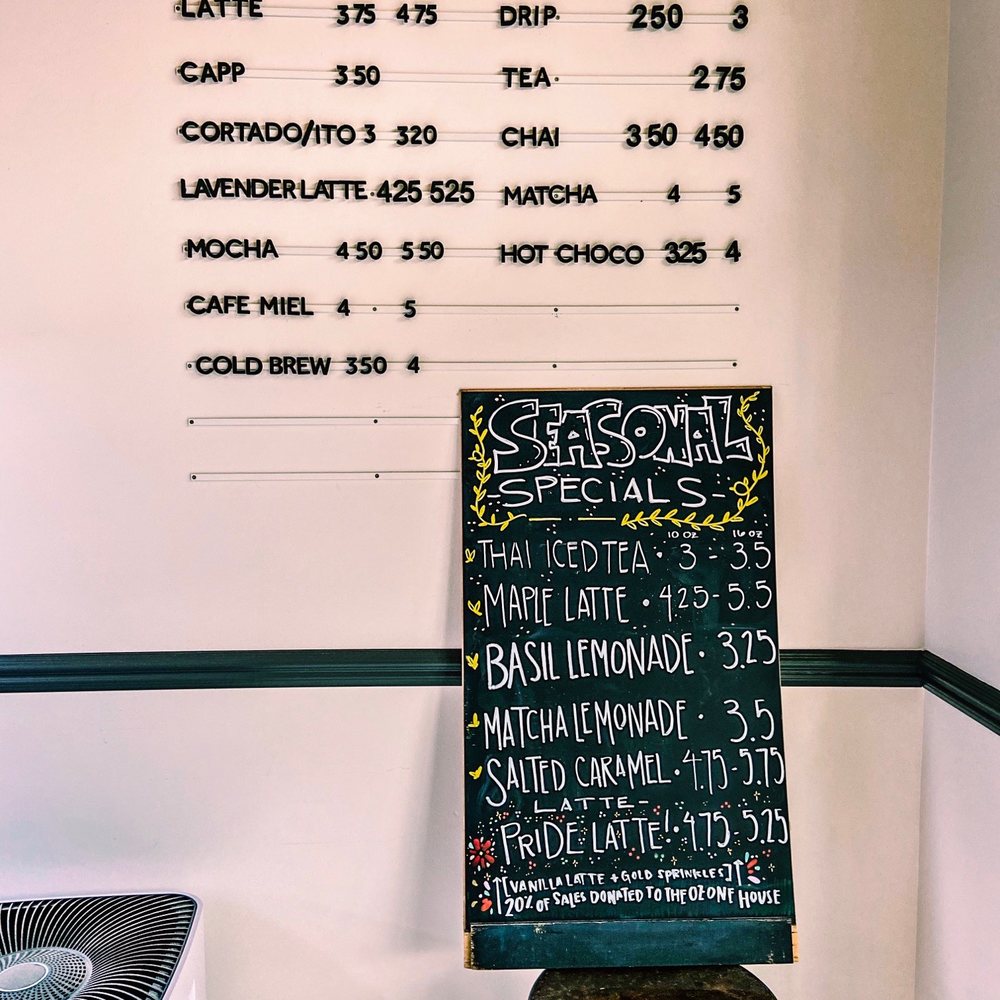 LATTE 375 475
CAPP 350
CORTADO/ITO 3 320
LAVENDER LATTE 425 525
MOCHA 450 550
CAFE MIEL 4 5
COLD BREW 350 4
DRIP 250 3
TEA 275
CHAI 350 450
MATCHA 4 5
HOT CHOCO 325 4
SEASONAL
-SPECIALS-
10 OZ 16 OZ
THAI ICED TEA · 3 - 3.5
MAPLE LATTE · 4.25 - 5.5
BASIL LEMONADE · 3.25
MATCHA LEMONADE · 3.5
SALTED CARAMEL · 4.75 - 5.75
LATTE-
PRIDE LATTE! · 4.75 - 5.25
[VANILLA LATTE + GOLD SPRINKLES]
20% OF SALES DONATED TO THE OZONE HOUSE